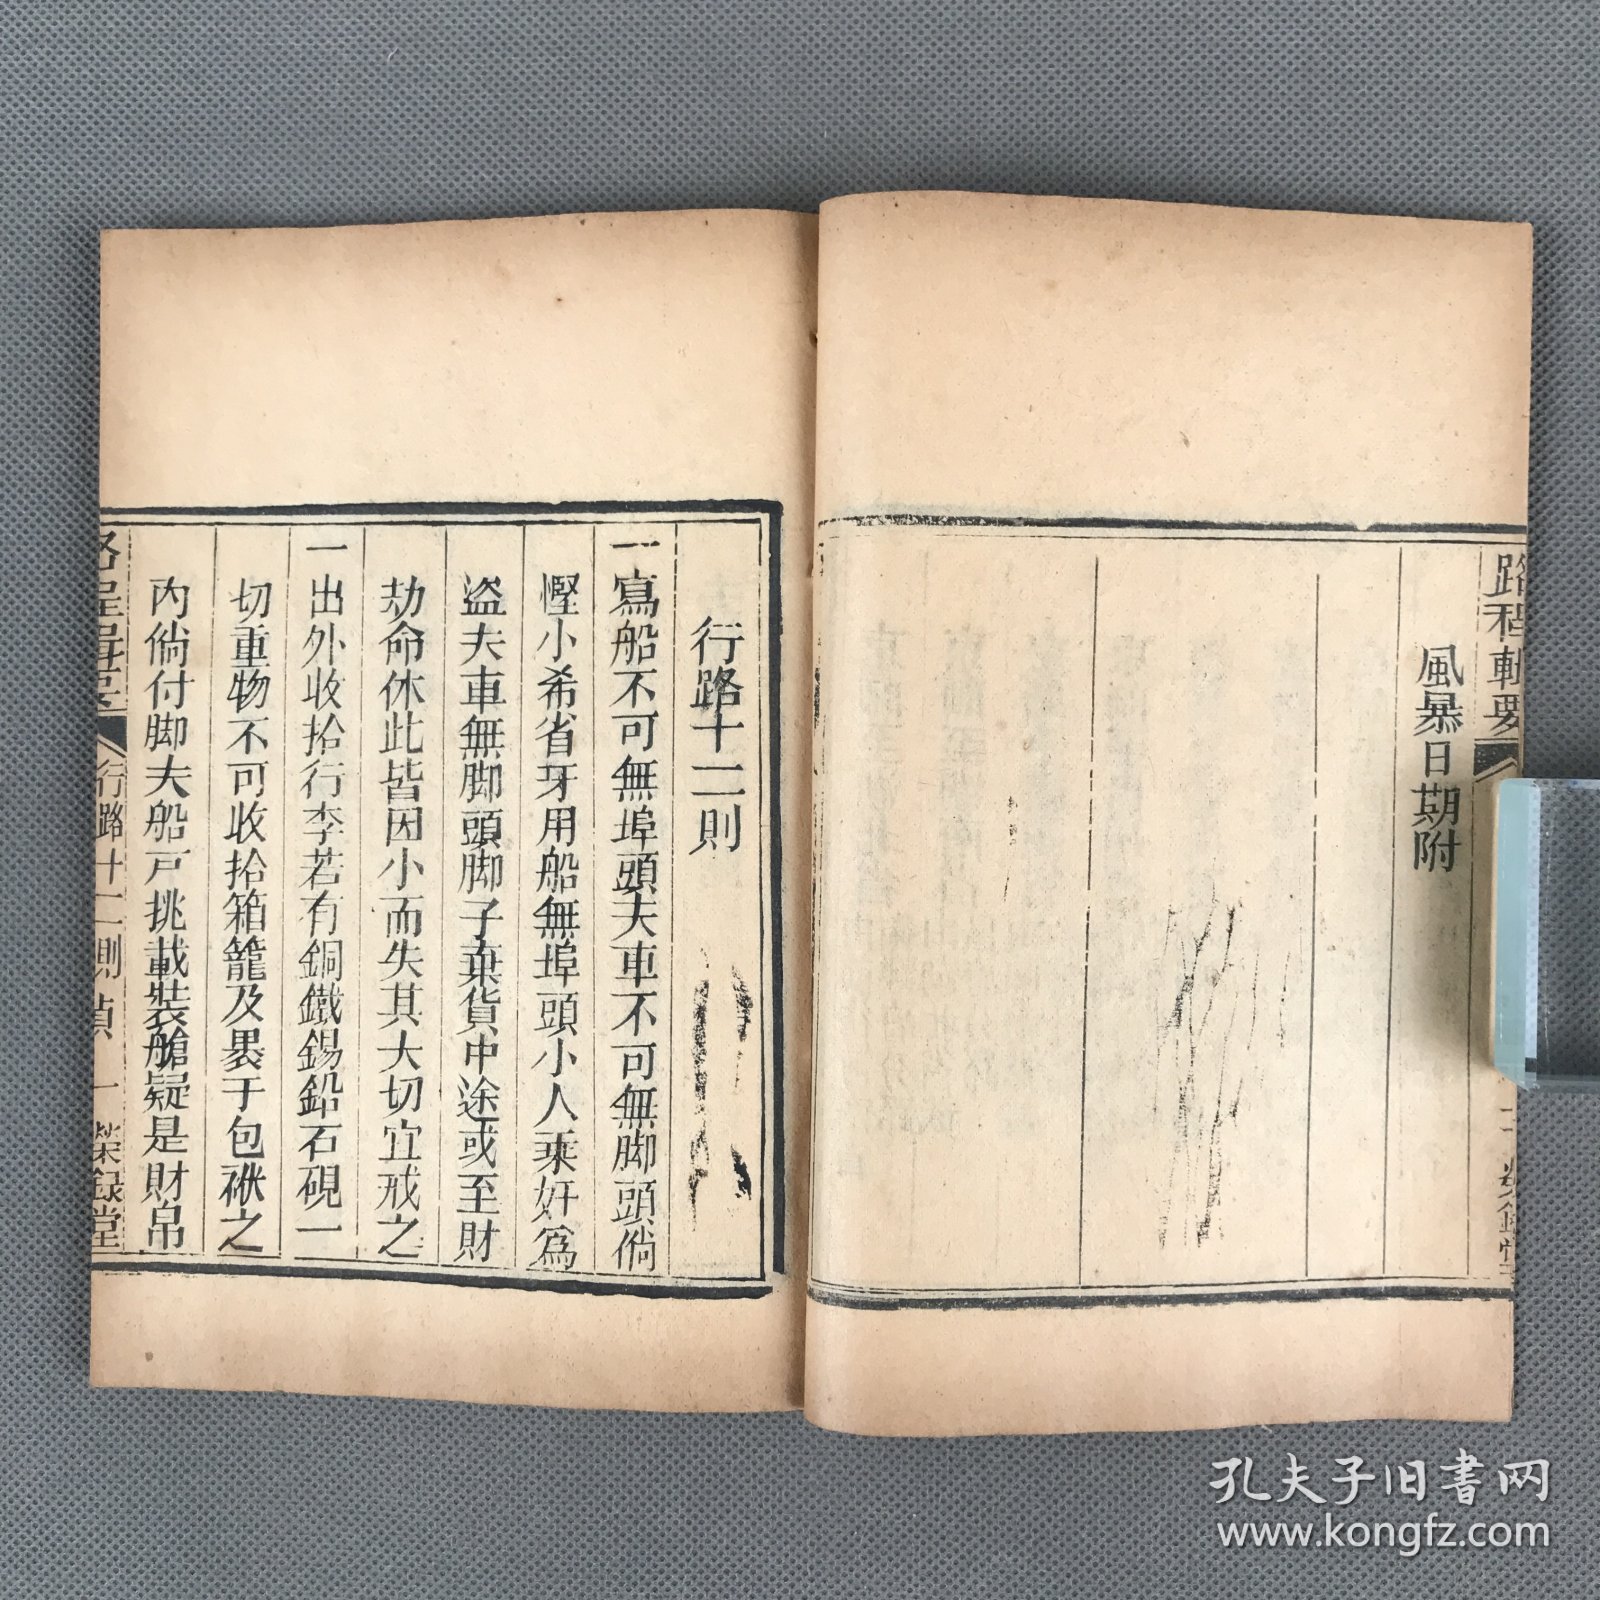 路程輯要
風暴日期附
行路十二則
一寫船不可無埠頭夫車不可無脚頭倘
慳小希省牙用船無埠頭小人乘奸為
盜夫車無脚頭脚子棄貨中途或至財
劫命休此皆因小而失其大切宜戒之
一出外收拾行李若有銅鐵錫鉛石硯一
切重物不可收拾箱籠及裹于包袱之
內倘付脚夫船戶挑載裝艙疑是財帛
路程輯要 行路十二則 貞 一 榮錄堂
孔夫子旧书网
www.kongfz.com